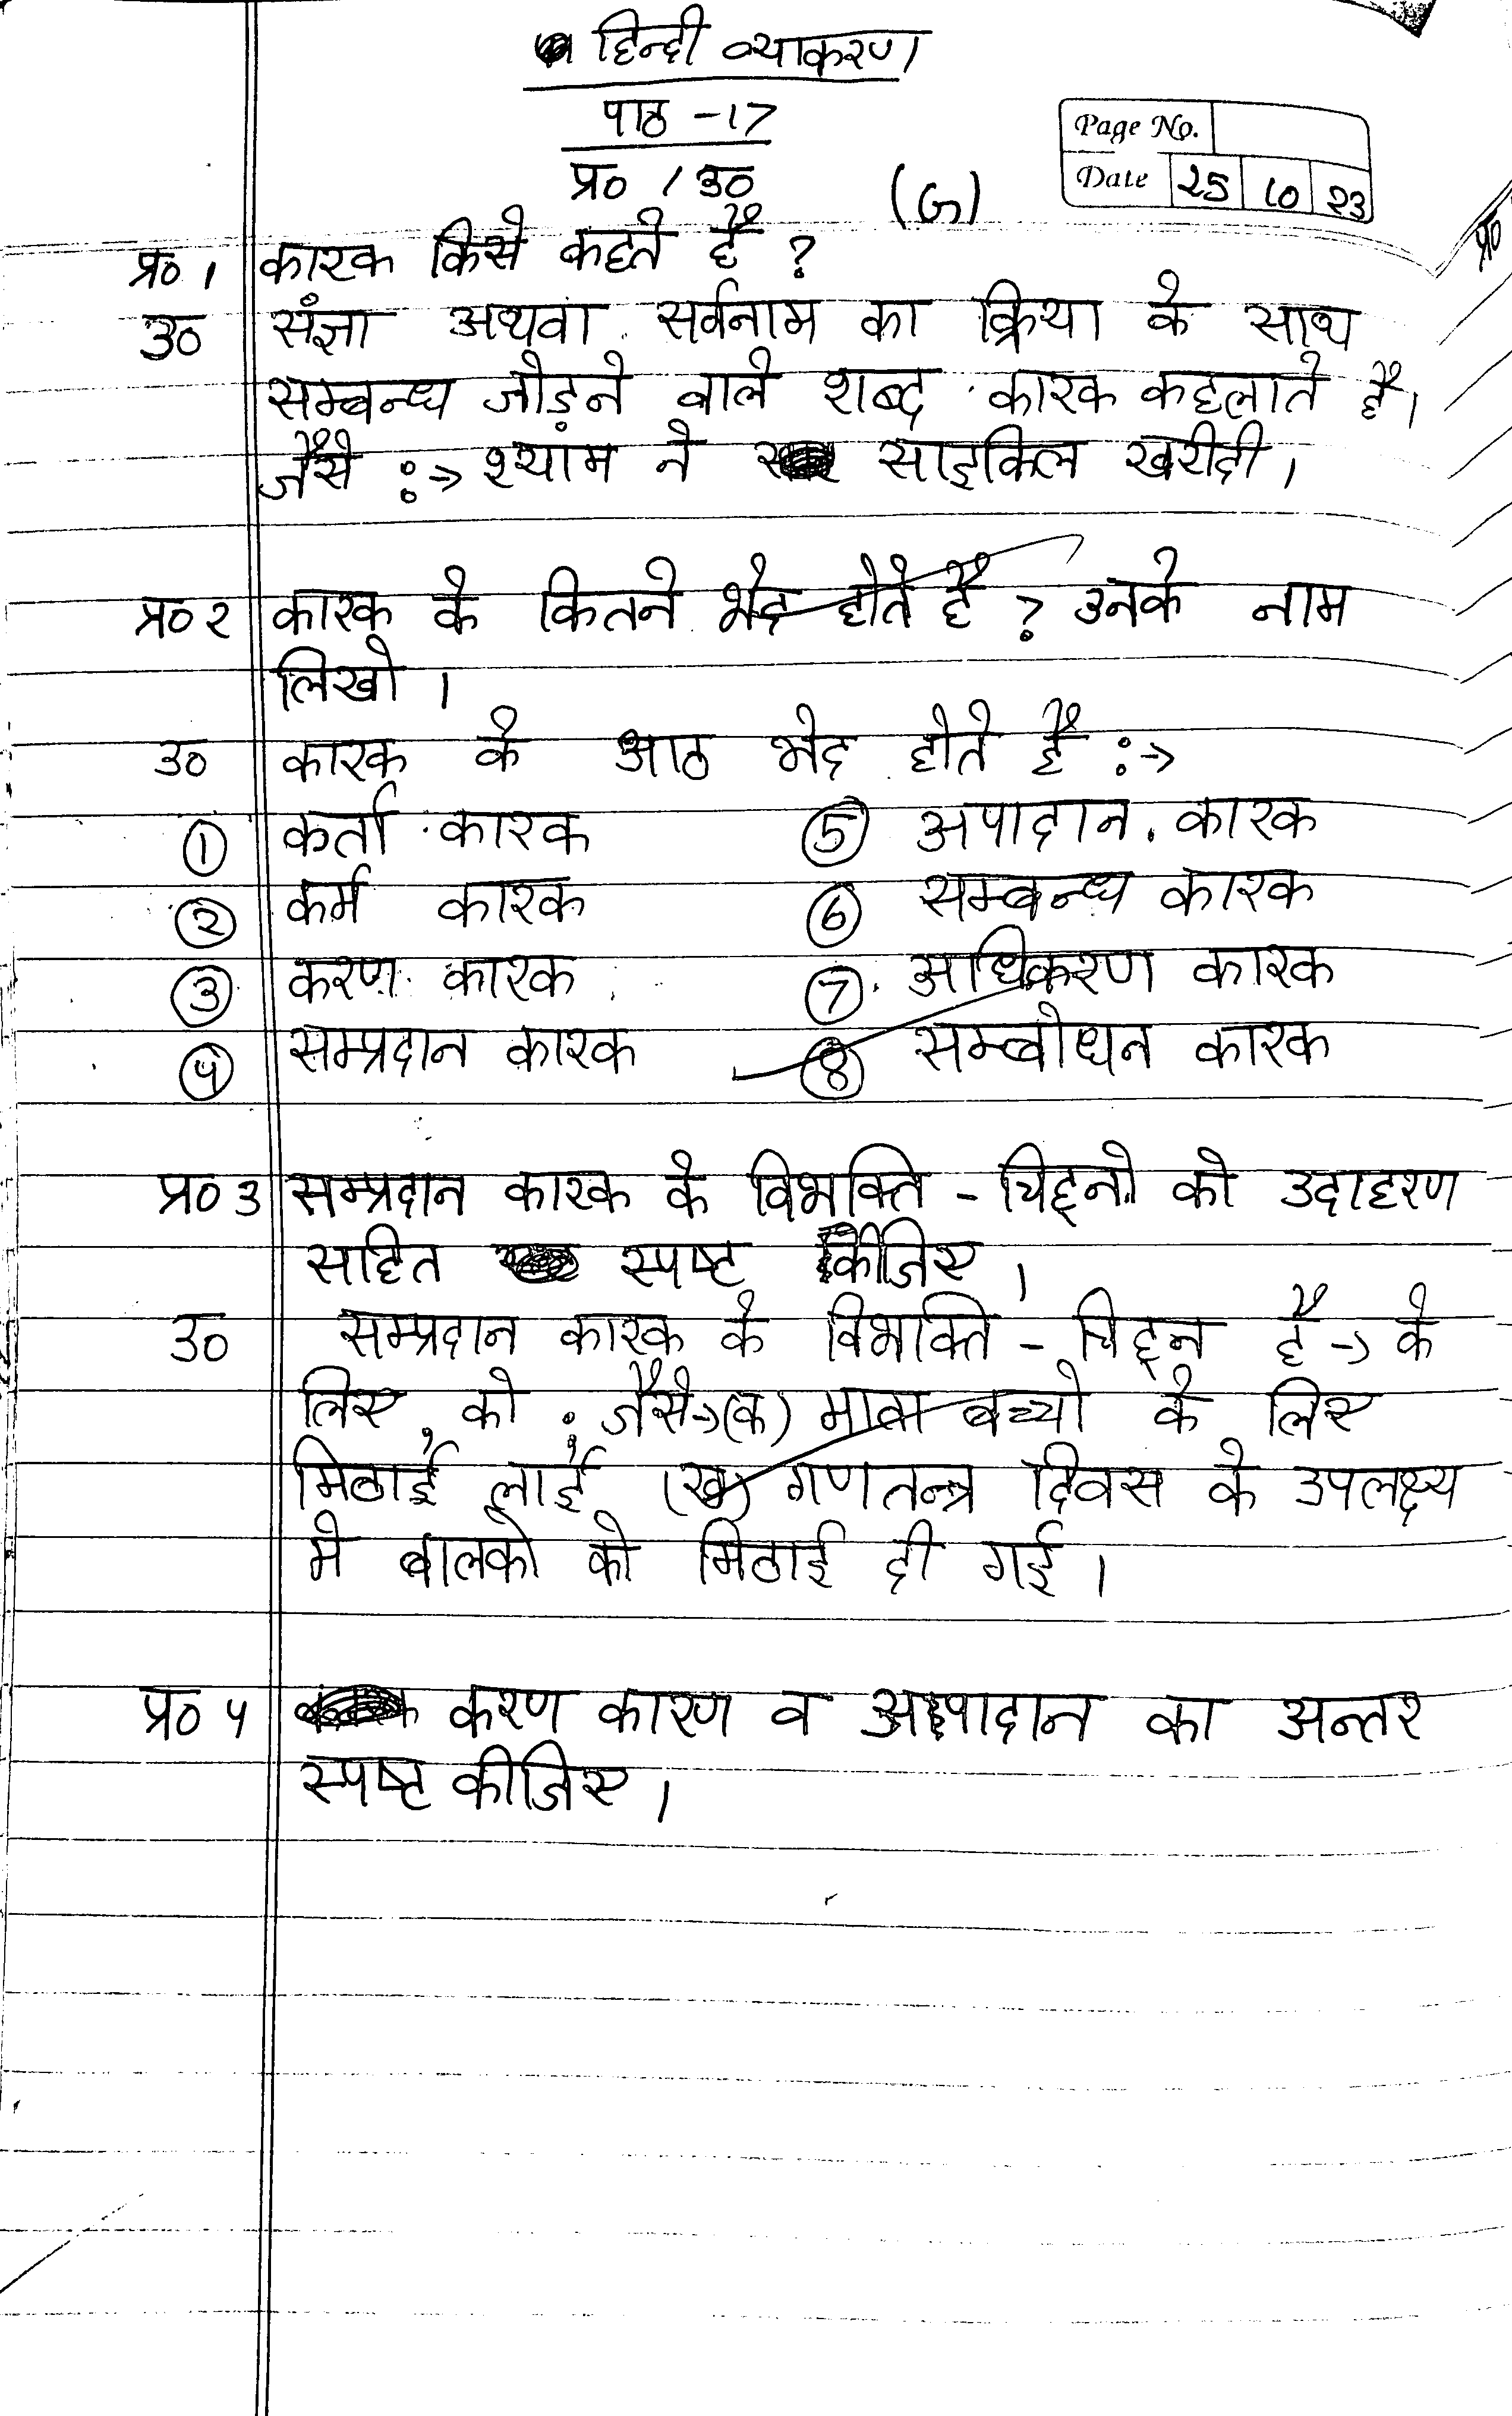 हिन्दी व्याकरण
पाठ -17
प्र० / उ०
(G)
Page No.
Date 25 10 23
प्र०
प्र० 1 कारक किसे कहते है ?
उ० संज्ञा अथवा सर्वनाम का क्रिया के साथ
सम्बन्ध जोड़ने वाले शब्द कारक कहलाते है।
जैसे :→ श्याम ने साइकिल खरीदी।
प्र० २ कारक के कितने भेद होते है ? उनके नाम
लिखो।
उ० कारक के आठ भेद होते है :→
① कर्ता कारक ⑤ अपादान कारक
② कर्म कारक ⑥ सम्बन्ध कारक
③ करण कारक ⑦ अधिकरण कारक
④ सम्प्रदान कारक ⑧ सम्बोधन कारक
प्र० 3 सम्प्रदान कारक के विभक्ति - चिह्नो को उदाहरण
सहित स्पष्ट कीजिए।
उ० सम्प्रदान कारक के विभक्ति - चिह्न है → के
लिए, को : जैसे→(क) माता बच्चो के लिए
मिठाई लाई (ख) गणतन्त्र दिवस के उपलक्ष्य
मे बालको को मिठाई दी गई।
प्र० 4 करण कारण व अपादान का अन्तर
स्पष्ट कीजिए।